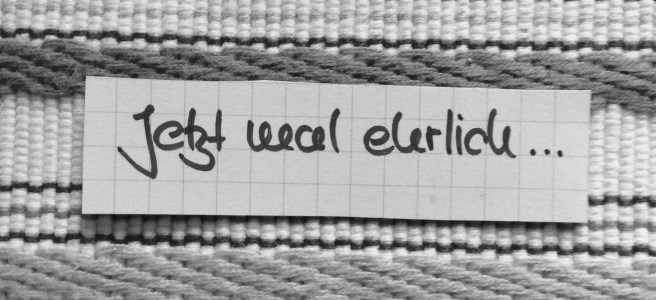 Jetzt mal ehrlich...